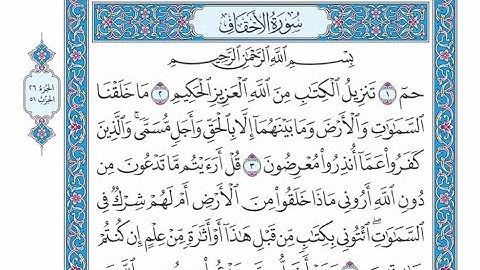 سُورَةُ الْأَحْقَافِ
بِسْمِ اللَّهِ الرَّحْمَٰنِ الرَّحِيمِ
الجزء ٢٦
الحزب ٥١
حمٓ ١ تَنزِيلُ الْكِتَٰبِ مِنَ اللَّهِ الْعَزِيزِ الْحَكِيمِ ٢ مَا خَلَقْنَا
السَّمَٰوَٰتِ وَالْأَرْضَ وَمَا بَيْنَهُمَآ إِلَّا بِالْحَقِّ وَأَجَلٍ مُّسَمًّى ۚ وَالَّذِينَ
كَفَرُوا۟ عَمَّآ أُنذِرُوا۟ مُعْرِضُونَ ٣ قُلْ أَرَءَيْتُم مَّا تَدْعُونَ مِن
دُونِ اللَّهِ أَرُونِى مَاذَا خَلَقُوا۟ مِنَ الْأَرْضِ أَمْ لَهُمْ شِرْكٌ فِى
السَّمَٰوَٰتِ ۖ ائْتُونِى بِكِتَٰبٍ مِّن قَبْلِ هَٰذَآ أَوْ أَثَٰرَةٍ مِّنْ عِلْمٍ إِن كُنتُمْ